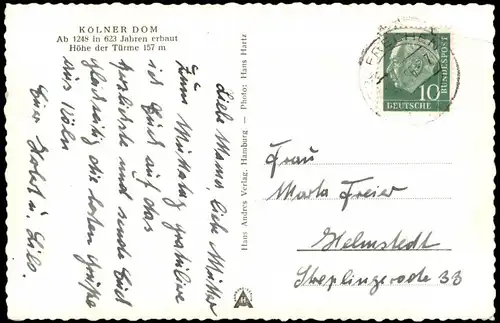 KÖLNER DOM
Ab 1248 in 623 Jahren erbaut
Höhe der Türme 157 m
Liebe Mama, liebe Mutter
Zum Muttertag gratuliere
ich Euch auf das
herzlichste und sende Euch
gleichzeitig die besten Grüße
aus Köln
Eure Horst u. Lilo.
Hans Andres Verlag, Hamburg — Photo: Hans Hartz
10
DEUTSCHE
BUNDESPOST
Frau
Marta Freier
Helmstedt
Steplingerade 33